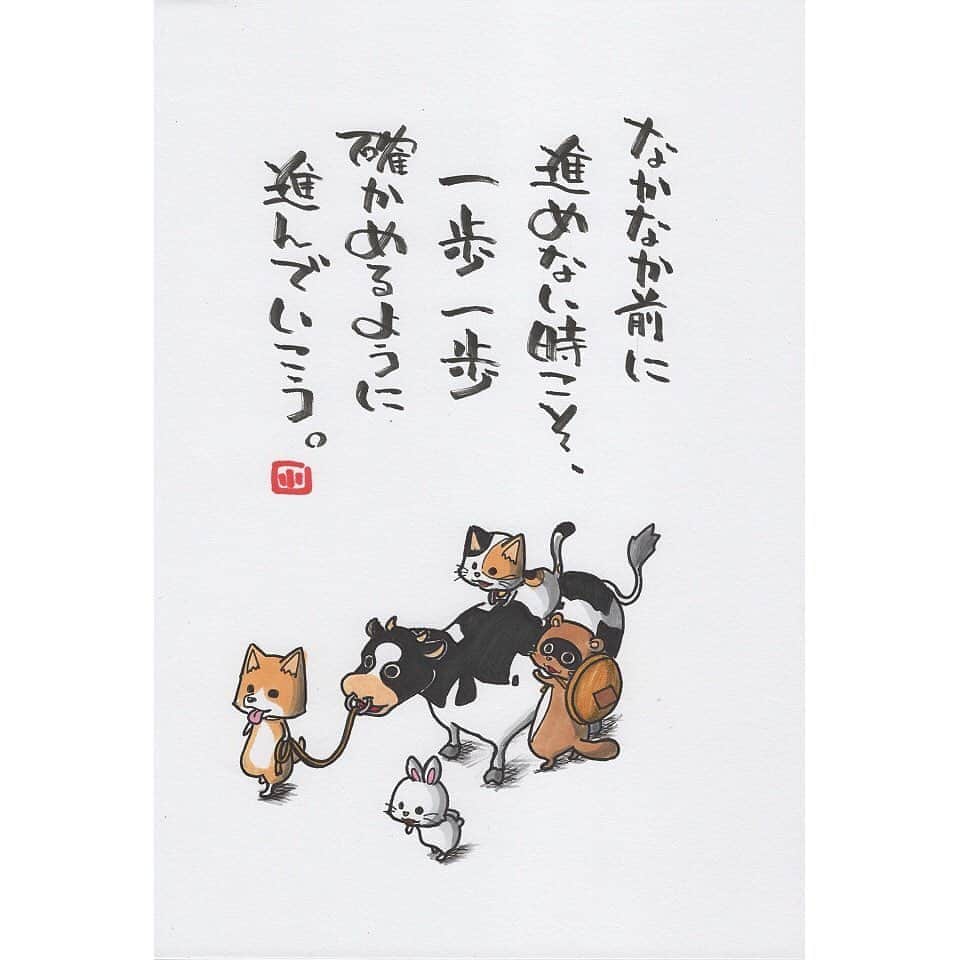 なかなか前に
進めない時こそ、
一歩一歩
確かめるように
進んでいこう。